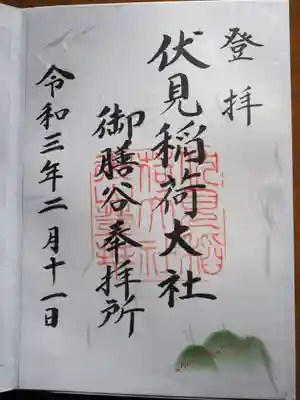 登拝
伏見稲荷大社
御膳谷奉拝所
令和三年二月十一日